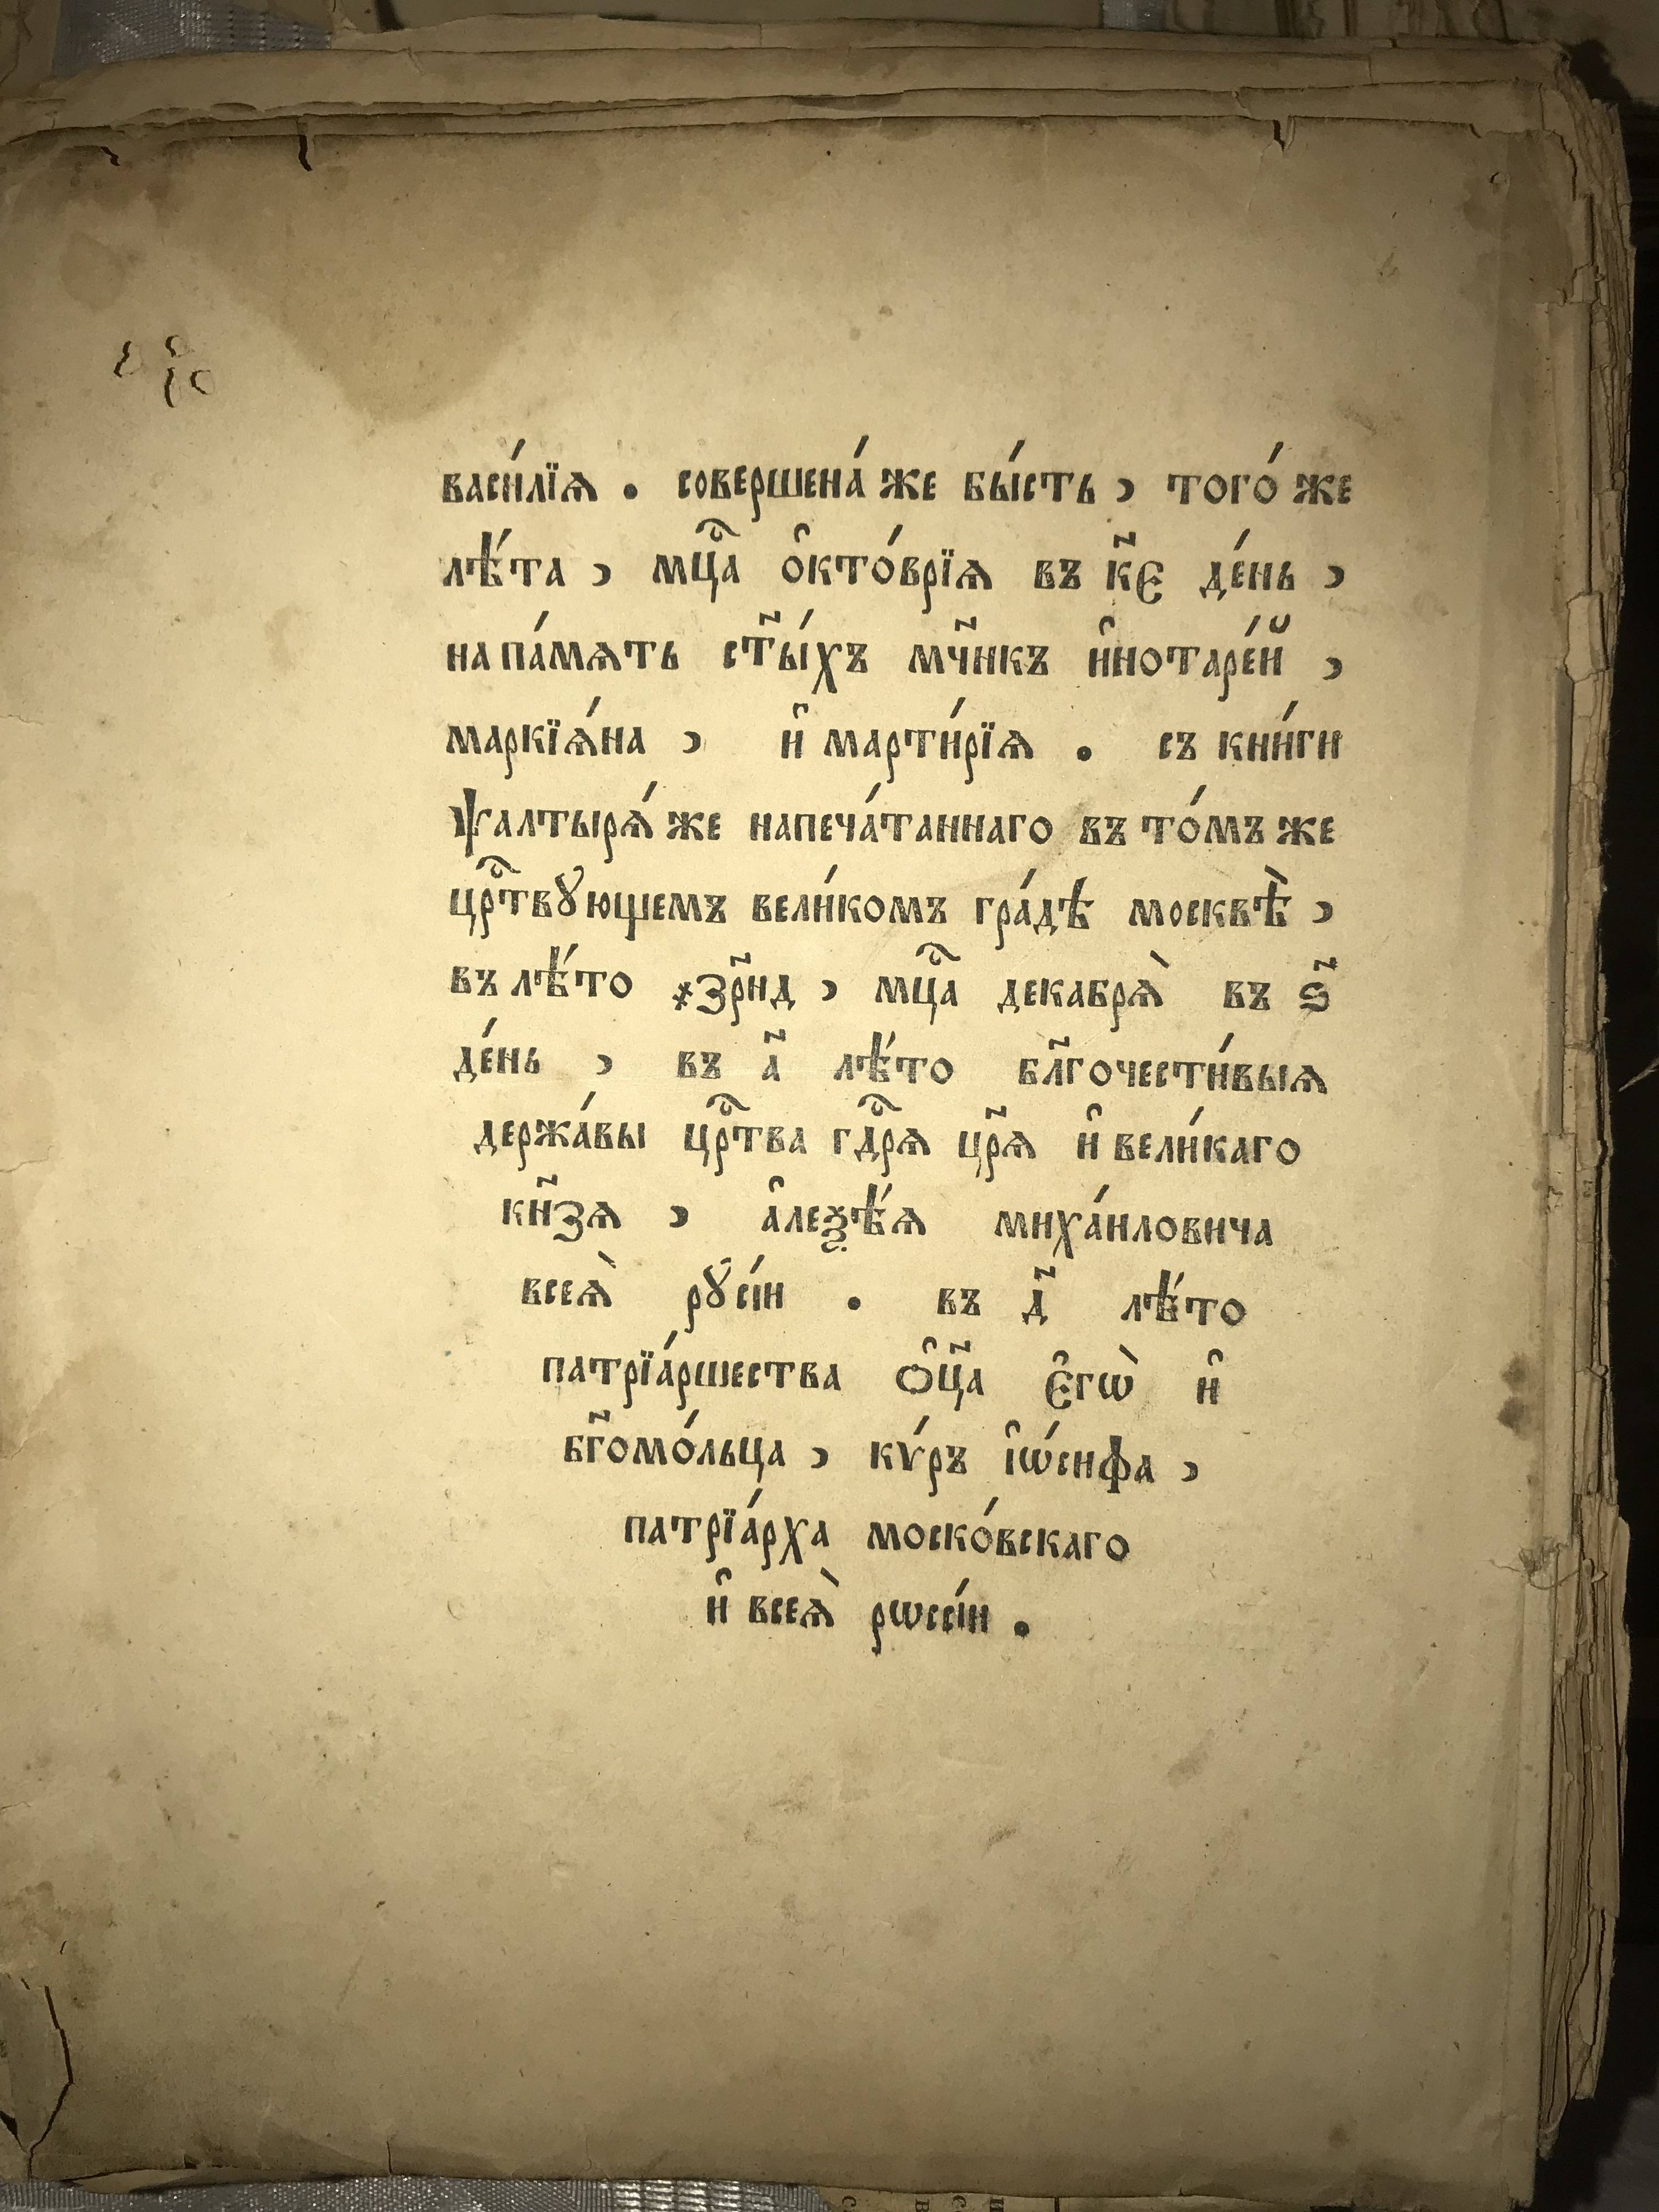 васи́лїѧ . соверше́на же бы́сть , того́ же
лѣ́та , мцⷭ҇а ѻ҆кто́врїѧ въ к҃є де́нь ,
на па́мѧть ст҃ы́хъ мч҃нкъ и҆нотаре́й ,
маркїѧ́на , и҆ марти́рїѧ . съ кни́ги
ѱалтырѧ́ же напеча́таннаго въ то́мъ же
црⷭ҇твꙋющемъ вели́комъ гра́дѣ москвѣ̀ ,
въ лѣ́то ҂зр҃нд , мцⷭ҇а декабрѧ̀ въ ѕ҃
де́нь , въ а҃ лѣ́то бл҃гочести́выѧ
держа́вы црⷭ҇тва гдⷭ҇рѧ цр҃ѧ и҆ вели́каго
кн҃зѧ , а҆леѯѣ́ѧ миха́иловича
всеѧ̀ рꙋсі́и . въ д҃ лѣ́то
патрїа́ршества ѻ҆ц҃а є҆гѡ̀ и҆
бг҃омо́льца , кѵ́ръ і҆ѡ́сифа ,
патрїа́рха моско́вскаго
и҆ всеѧ̀ рѡссі́и .